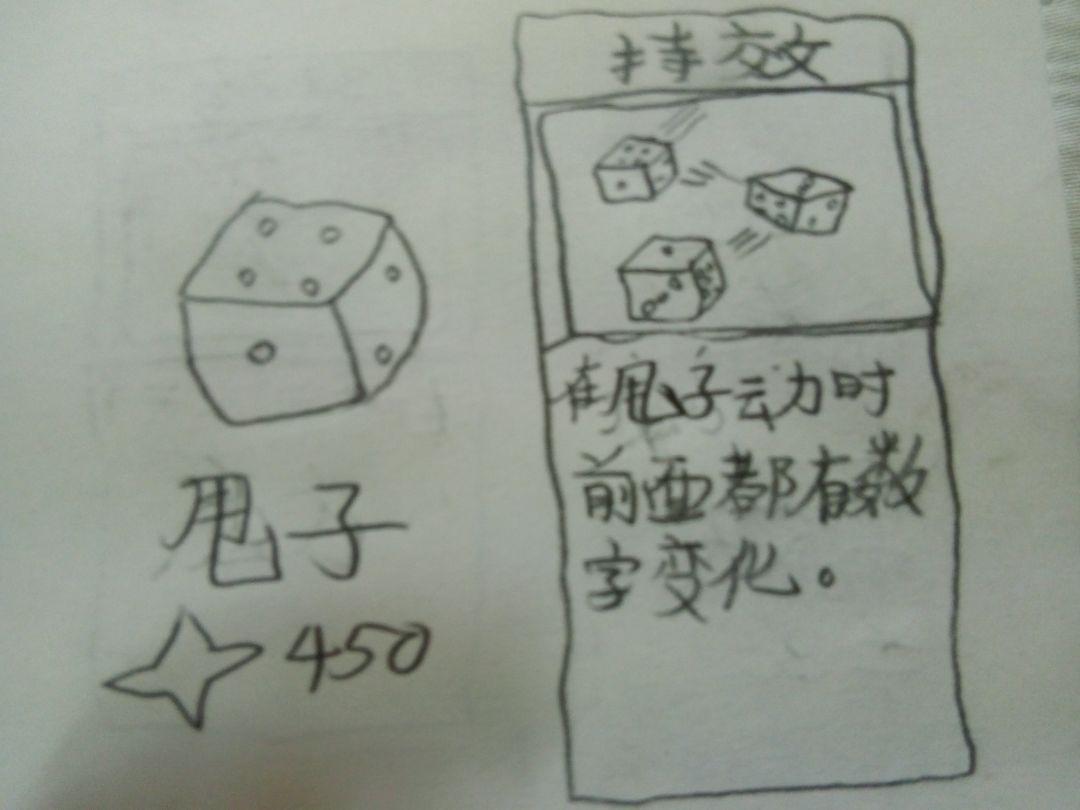 甩子
450
持效
在甩子动时
前面都有数
字变化。